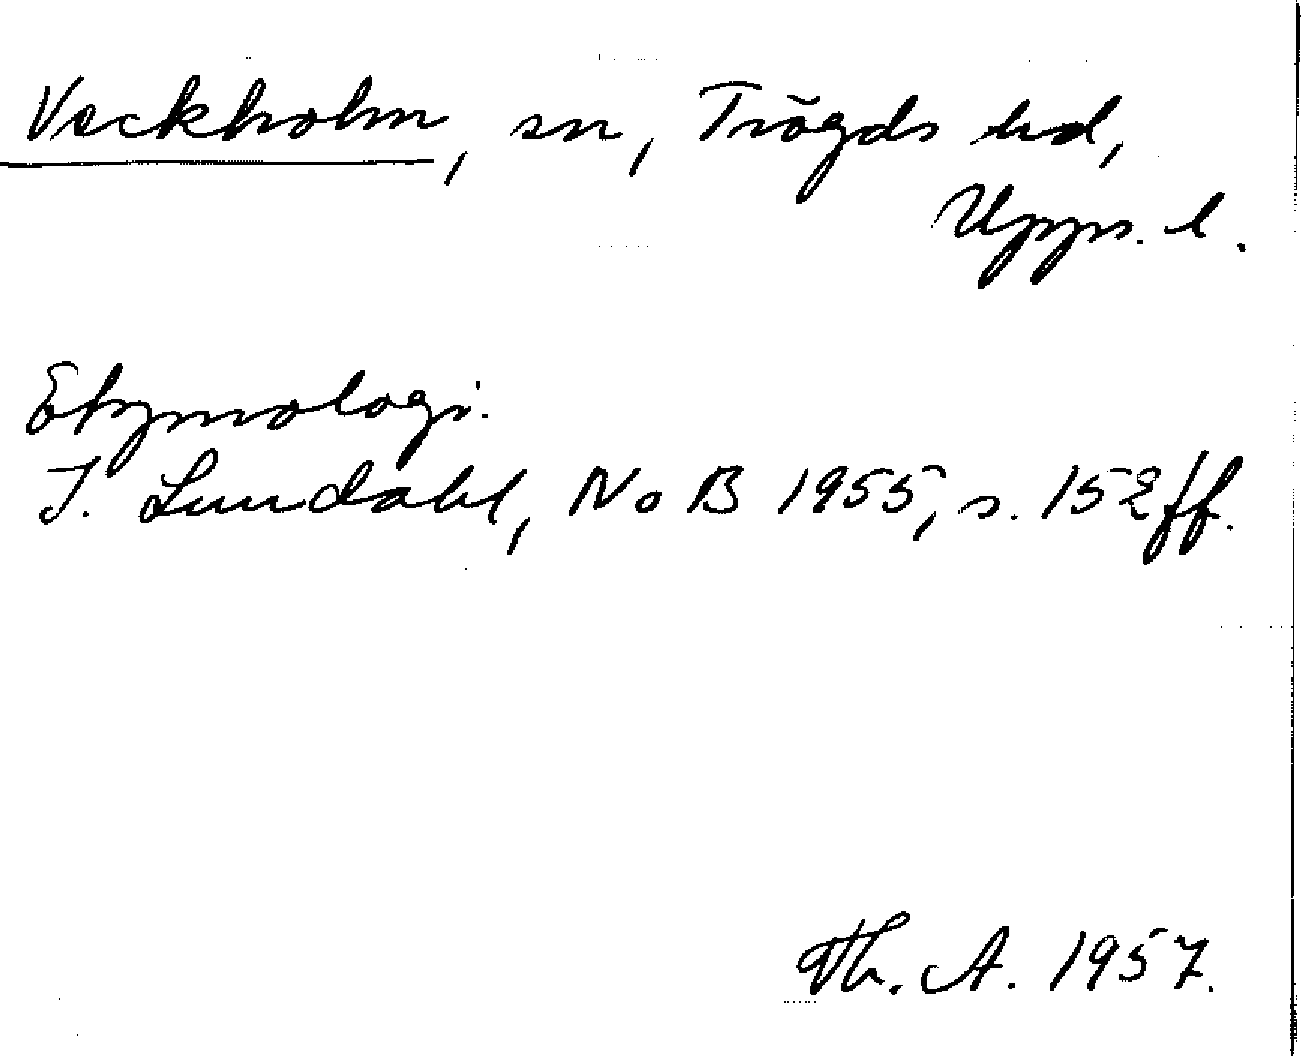 Veckholm, sn, Trögds hd,
Upps. l.
Etymologi.
I. Lundahl, NoB 1955, s. 152 ff.
Th. A. 1957.